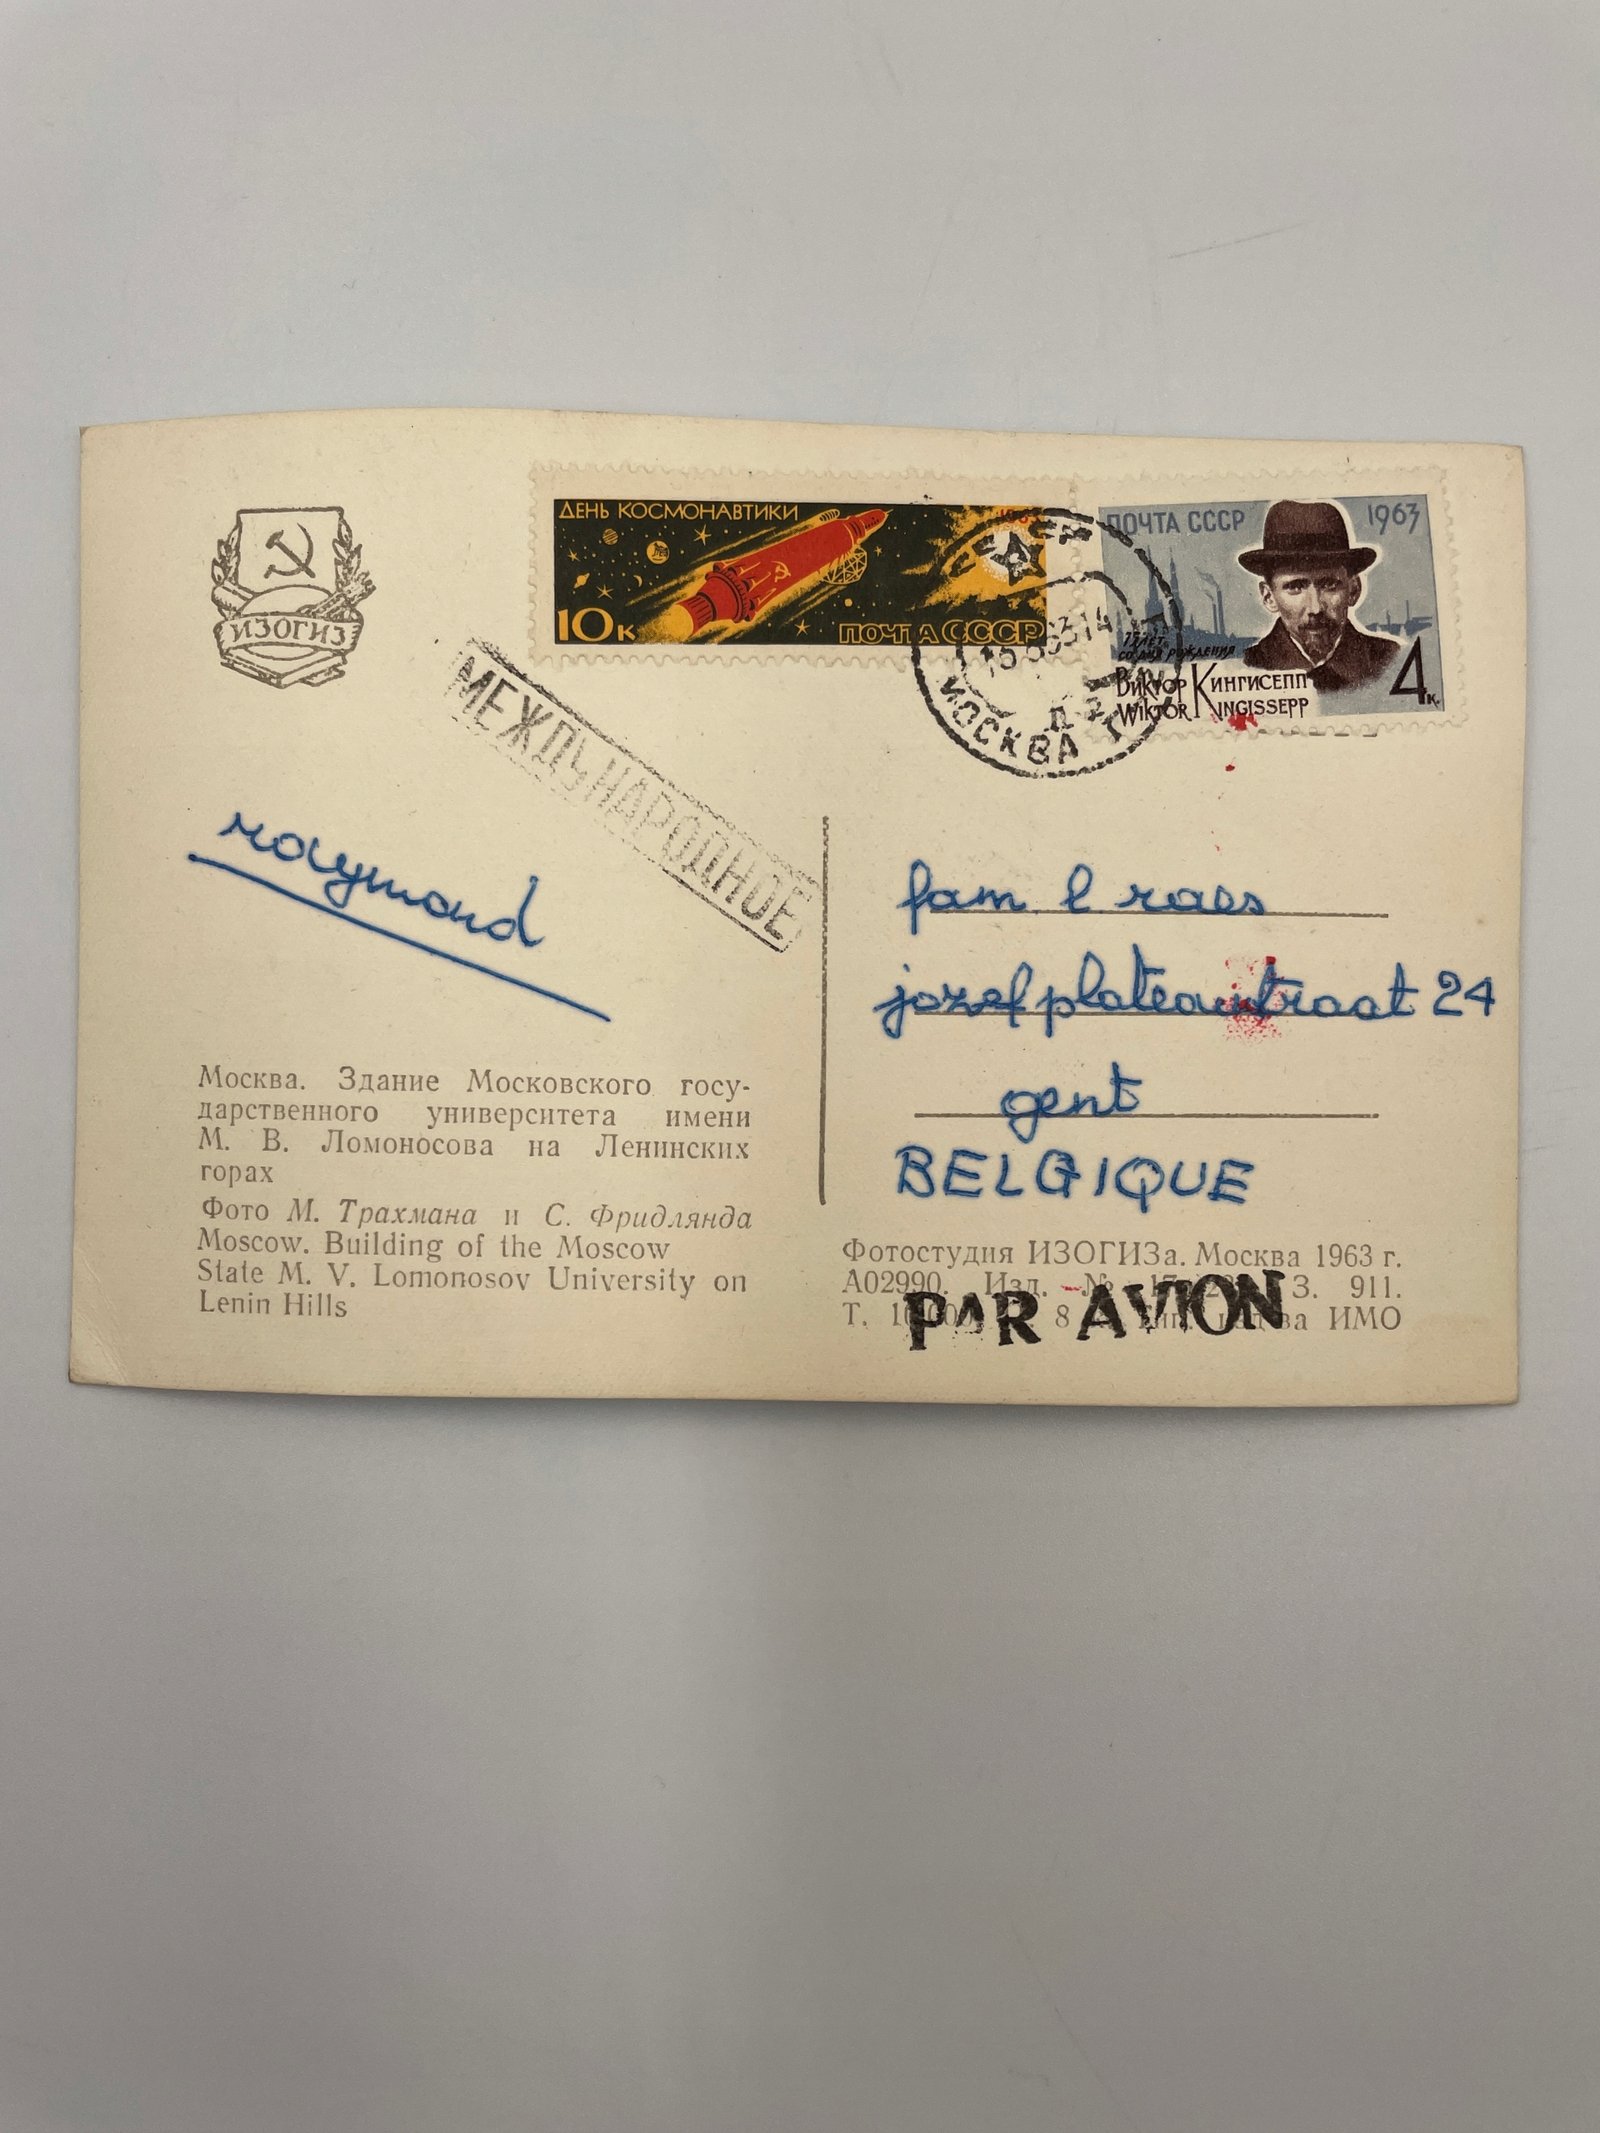 ДЕНЬ КОСМОНАВТИКИ
10к
ПОЧТА СССР
ПОЧТА СССР 1963
75 ЛЕТ
СО ДНЯ РОЖДЕНИЯ
ВИКТОР КИНГИСЕПП
WIKTOR KINGISSEPP
4к.
МОСКВА
ИЗОГИЗ
МЕЖДУНАРОДНОЕ
raymond
Москва. Здание Московского госу-
дарственного университета имени
М. В. Ломоносова на Ленинских
горах
Фото М. Трахмана и С. Фридлянда
Moscow. Building of the Moscow
State M. V. Lomonosov University on
Lenin Hills
fam. l raes
jozef plateaustraat 24
gent
BELGIQUE
Фотостудия ИЗОГИЗа. Москва 1963 г.
А02990. Изд. № З. 911.
Т. 8 ИМО
PAR AVION